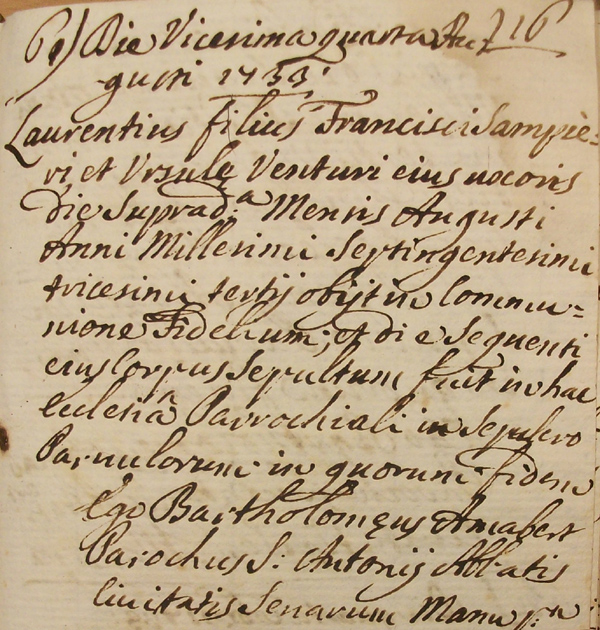 Die Vicesima quarta Au= 216
gusti 1733
Laurentius filius Francisci Sampie=
ri et Ursulę Venturi eius uxoris
die Suprad.a Mensis Augusti
Anni Millesimi Septingentesimi
tricesimi tertij obijt in Commu=
nione Fidelium; et die Sequenti
eius Corpus Sepultum fuit in hac
ecclesiâ Parrochiali in Sepulcro
Parvulorum in quorum fidem
Ego Bartholomęus Amabert
Parochus S: Antonij Abbatis
Civitatis Senarum Manu